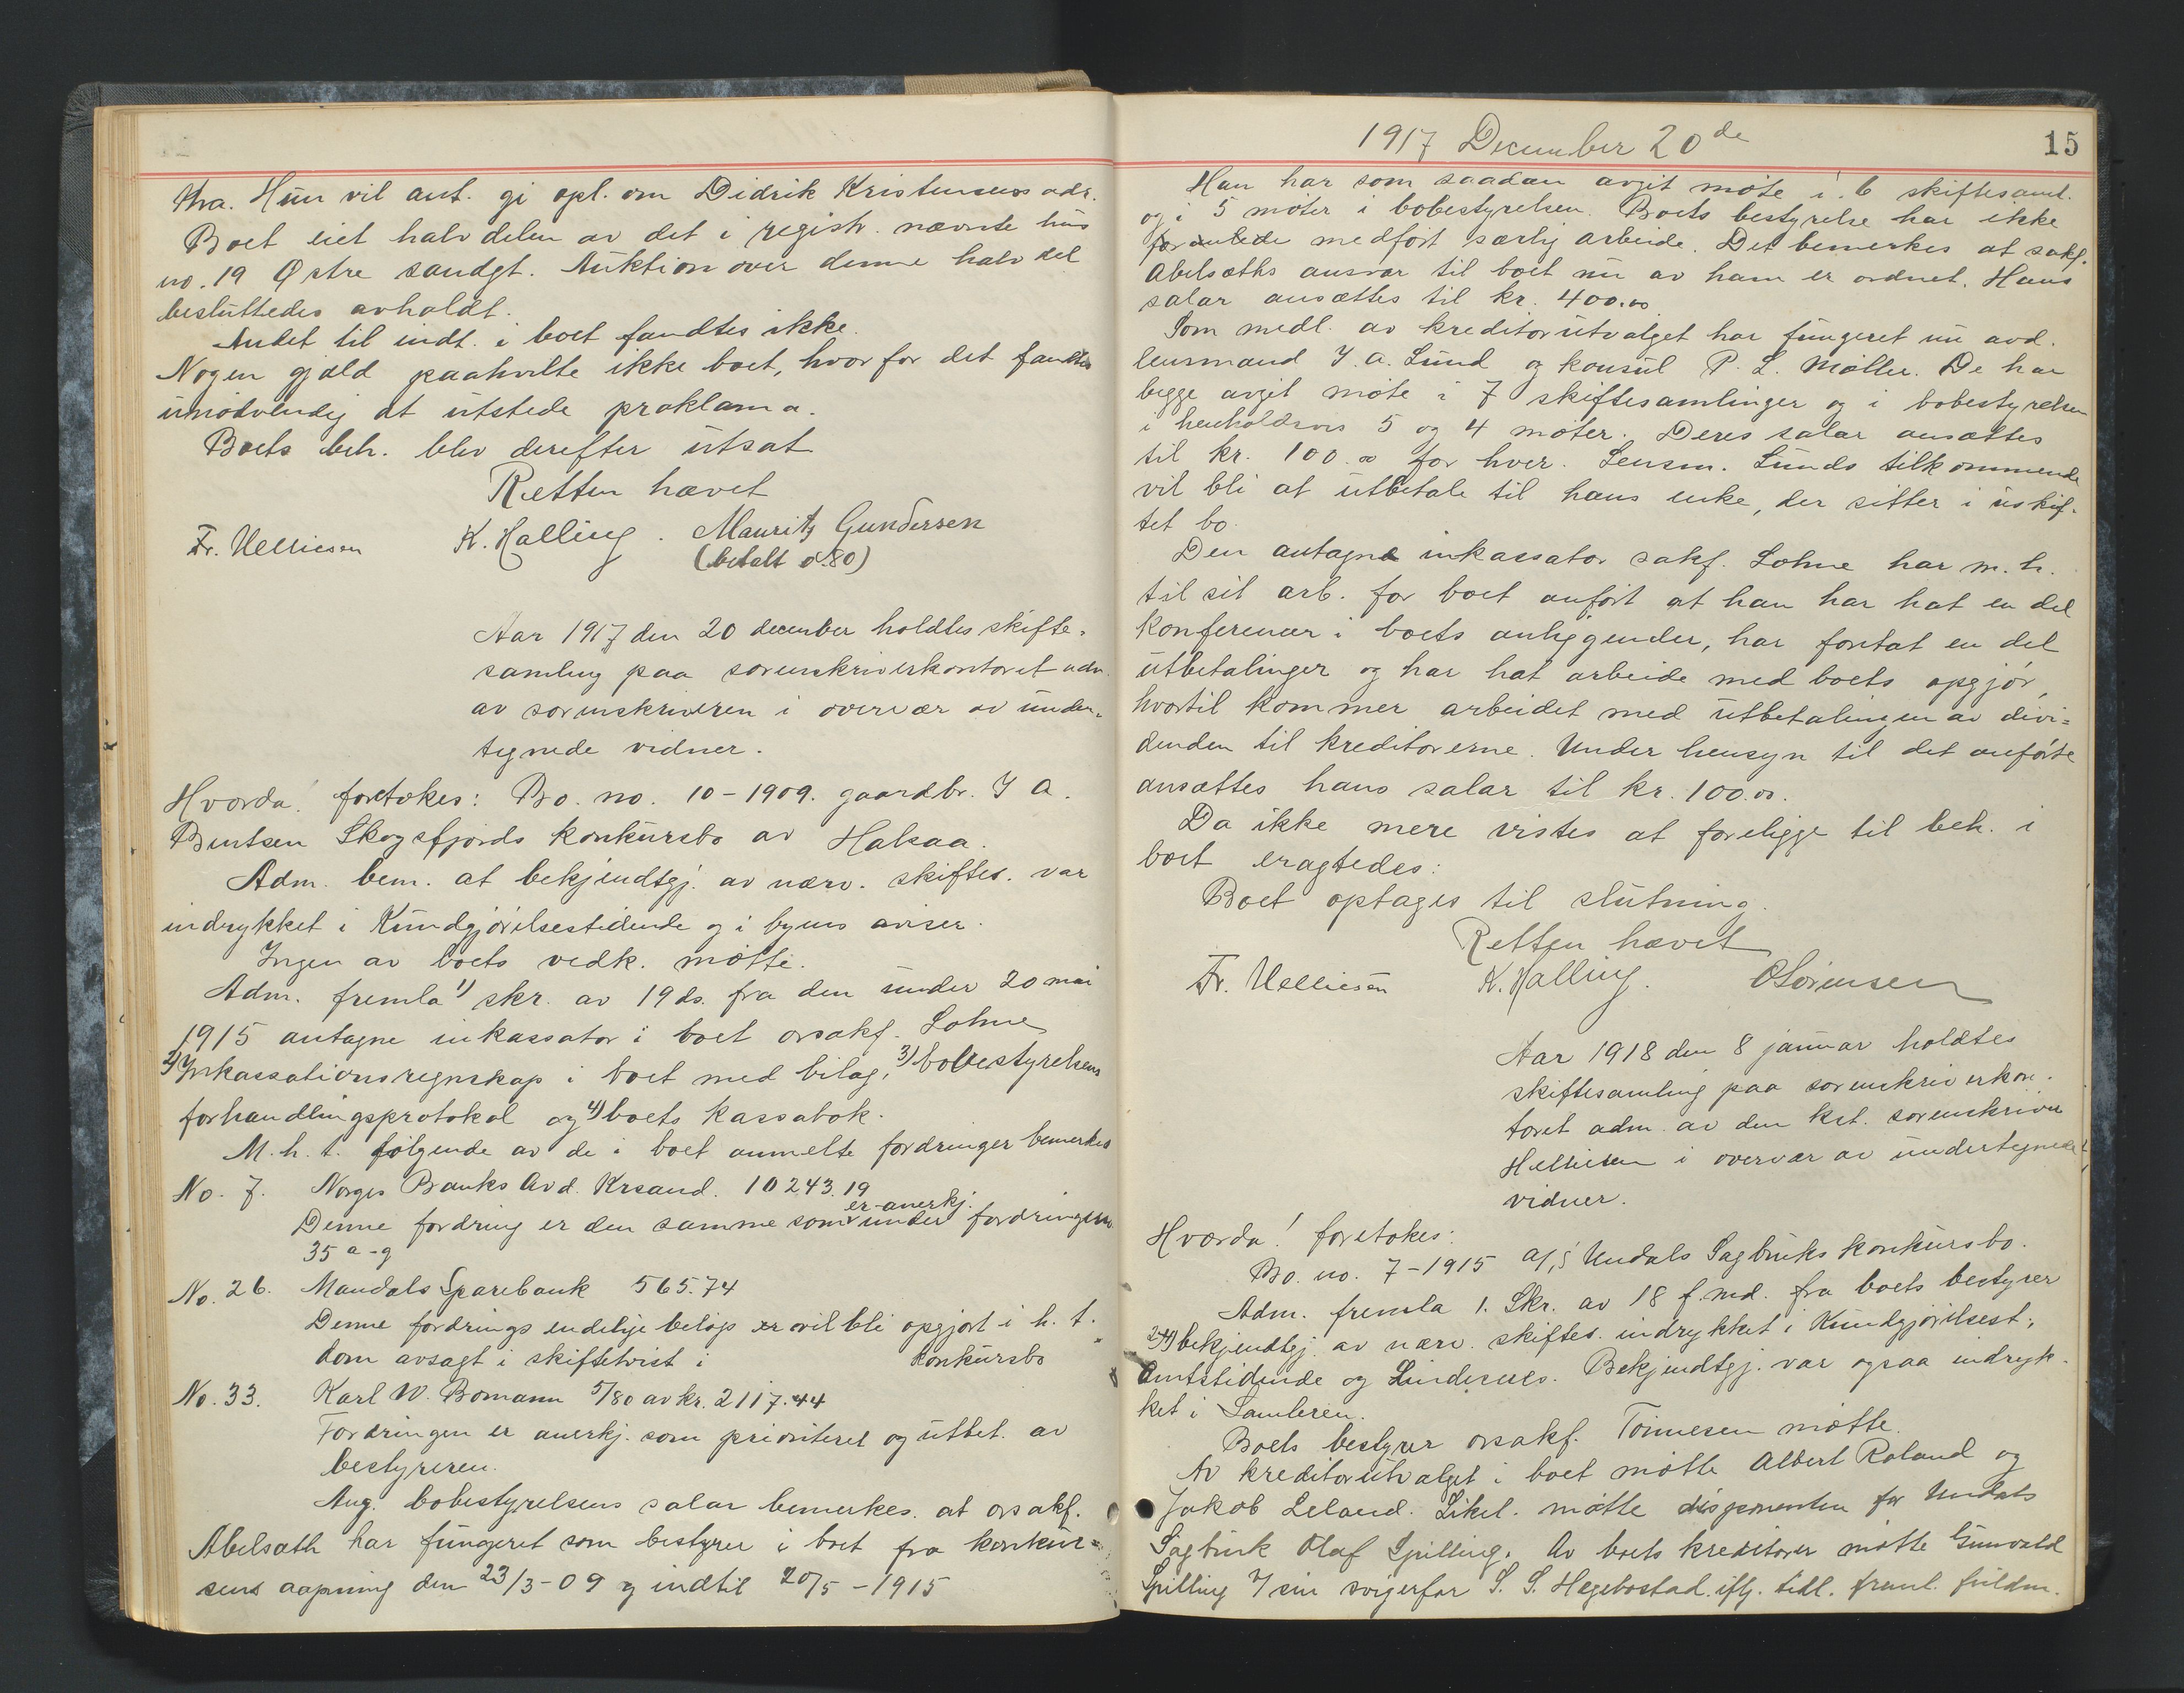 Hra. Hun vil ant. gi opl. om Didrik Kristensens adr.
Boet eiet halvdelen av det i registr. nævnte hus
no. 19 Østre sandgt. Auktion over denne halvdel
besluttedes avholdt.
Andet til indt. i boet fandtes ikke.
Nogen gjæld paahvilte ikke boet, hvorfor det fandtes
unødvendig at utstede proklama.
Boets beh. blev derefter utsat
Retten hævet
Fr. Helliesen K. Halling. Mauritz Gundersen
(betalt 0.80)
Aar 1917 den 20 december holdtes skifte-
samling paa sorenskriverkontoret adm.
av sorenskriveren i overvær av under-
tegnede vidner.
Hvorda! foretokes: Bo. no. 10-1909. gaardbr. J A.
Bentsen Skogsfjords konkursbo av Halsaa.
Adm. bem. at bekjendtgj. av nærv. skiftes. var
indrykket i Kundgjørelsestidende og i byens aviser.
Ingen av boets vedk. møtte.
Adm. fremla 1) skr. av 19 ds. fra den under 20 mai
1915 antagne inkassator i boet o.r.sakf. Lohne
2) Inkassationsregnskap i boet med bilag, 3) bobestyrelsens
forhandlingsprotokol og 4) boets kassabok.
M. h. t. følgende av de i boet anmelte fordringer bemerkes
No. 7. Norges Banks Avd. Krsand. 10243.19
er anerkj.
Denne fordring er den samme som under fordringen
35 a-g
No. 26. Mandals Sparebank 565.74
Denne fordrings endelige beløp er vil bli opgjort i h. t.
dom avsagt i skiftetvist i konkursbo
No. 33. Karl W. Bomann 5/80 av kr. 2117.44
Fordringen er anerkj. som prioritert og utbet. av
bestyreren.
Ang. bobestyrelsens salar bemerkes at o.r.sakf.
Abelsæth har fungeret som bestyrer i boet fra konkur-
sens aapning den 23/3-09 og indtil 20/5-1915
1917 December 20de
15
Han har som saadan avgit møte i 6 skiftesaml.
og i 5 møter i bobestyrelsen. Boets bestyrelse har ikke
foranledet medført særlig arbeide. Det bemerkes at sakf.
Abelsæths ansvar til boet nu av ham er ordnet. Hans
salar ansættes til kr. 400.00
Som medl. av kreditorutvalget har fungeret nu avd.
lensmand J. A. Lund og konsul P. L. Møller. De har
begge avgit møte i 7 skiftesamlinger og i bobestyrelsen
i henholdsvis 5 og 4 møter. Deres salar ansættes
til kr. 100.00 for hver. Lensm. Lunds tilkommende
vil bli at utbetale til hans enke, der sitter i uskif-
tet bo.
Den antagne inkassator sakf. Lohne har m. h.
til sit arb. for boet anført at han har hat en del
konferencer i boets anliggender, har foretat en del
utbetalinger og har hat arbeide med boets opgjør,
hvortil kommer arbeidet med utbetalingen av divi-
denden til kreditorerne. Under hensyn til det anførte
ansættes hans salar til kr. 100.00.
Da ikke mere vistes at foreligge til beh. i
boet eragtedes:
Boet optages til slutning.
Retten hævet
Fr. Helliesen K. Halling. O Sørensen
Aar 1918 den 8 januar holdtes
skiftesamling paa sorenskriverkon-
toret adm. av den kst. sorenskriver
Helliesen i overvær av undertegnede
vidner.
Hvorda! foretokes:
Bo. no. 7-1915 A/S Undals Sagbruks konkursbo.
Adm. fremla 1. Skr. av 18 f. md. fra boets bestyrer
2-4) bekjendtgj. av nærv. skiftes. indrykket i Kundgjørelsest.,
Amtstidende og Lindesnes. Bekjendtgj. var ogsaa indryk-
ket i Samleren.
Boets bestyrer o.r.sakf. Tønnesen møtte.
Av kreditorutvalget i boet møtte Albert Roland og
Jakob Leland. Likel. møtte disponenten for Undals
Sagbruk Olaf Spilling. Av boets kreditorer møtte Gunvald
Spilling f/ sin svigerfar S. S. Hegebostad iflg. tidl. freml. fuldm.